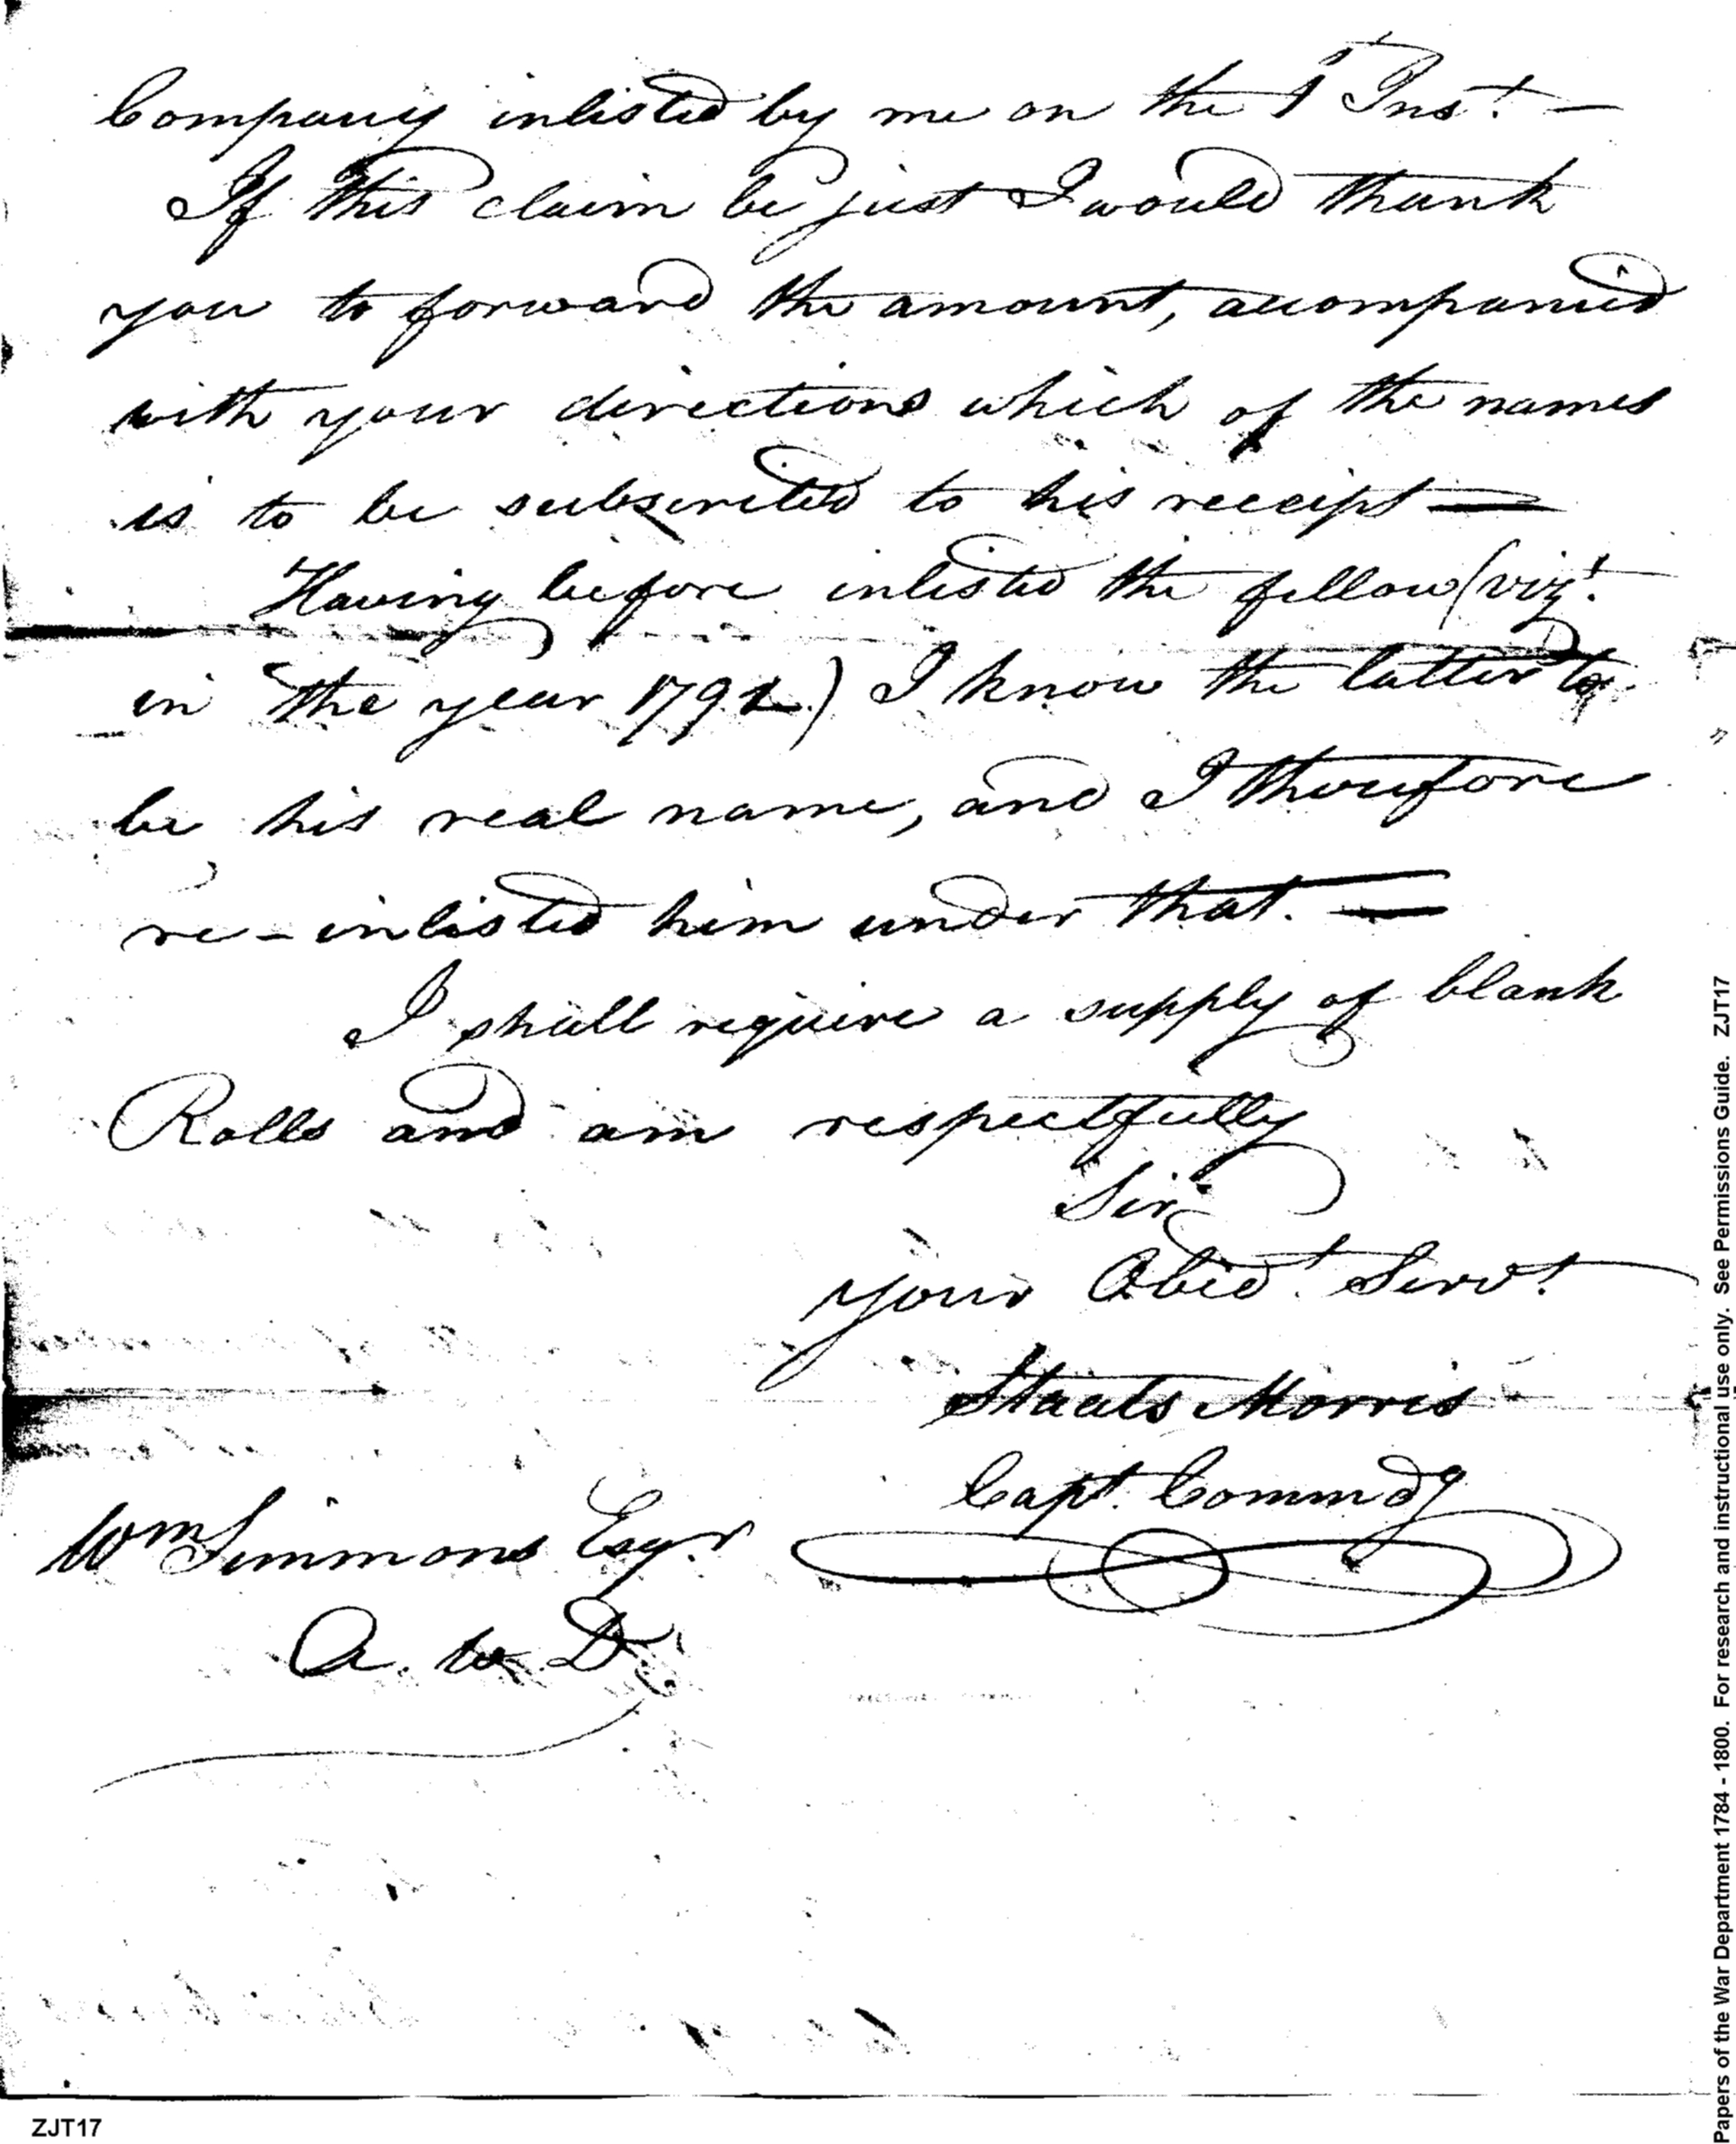 Company inlisted by me on the 1st Inst. —
If this claim be just I would thank
you to forward the amount, accompanied
with your directions which of the names
is to be subscribed to his receipt —
Having before inlisted the fellow (vizt.
in the year 1792) I know the latter to
be his real name, and I therefore
re-inlisted him under that. —
I shall require a supply of blank
Rolls and am respectfully
Sir
your Obedt. Servt.
Staats Morris
Capt. Commdg
Wm Simmons Esqr
A. W. D.
ZJT17
Papers of the War Department 1784 - 1800. For research and instructional use only. See Permissions Guide. ZJT17